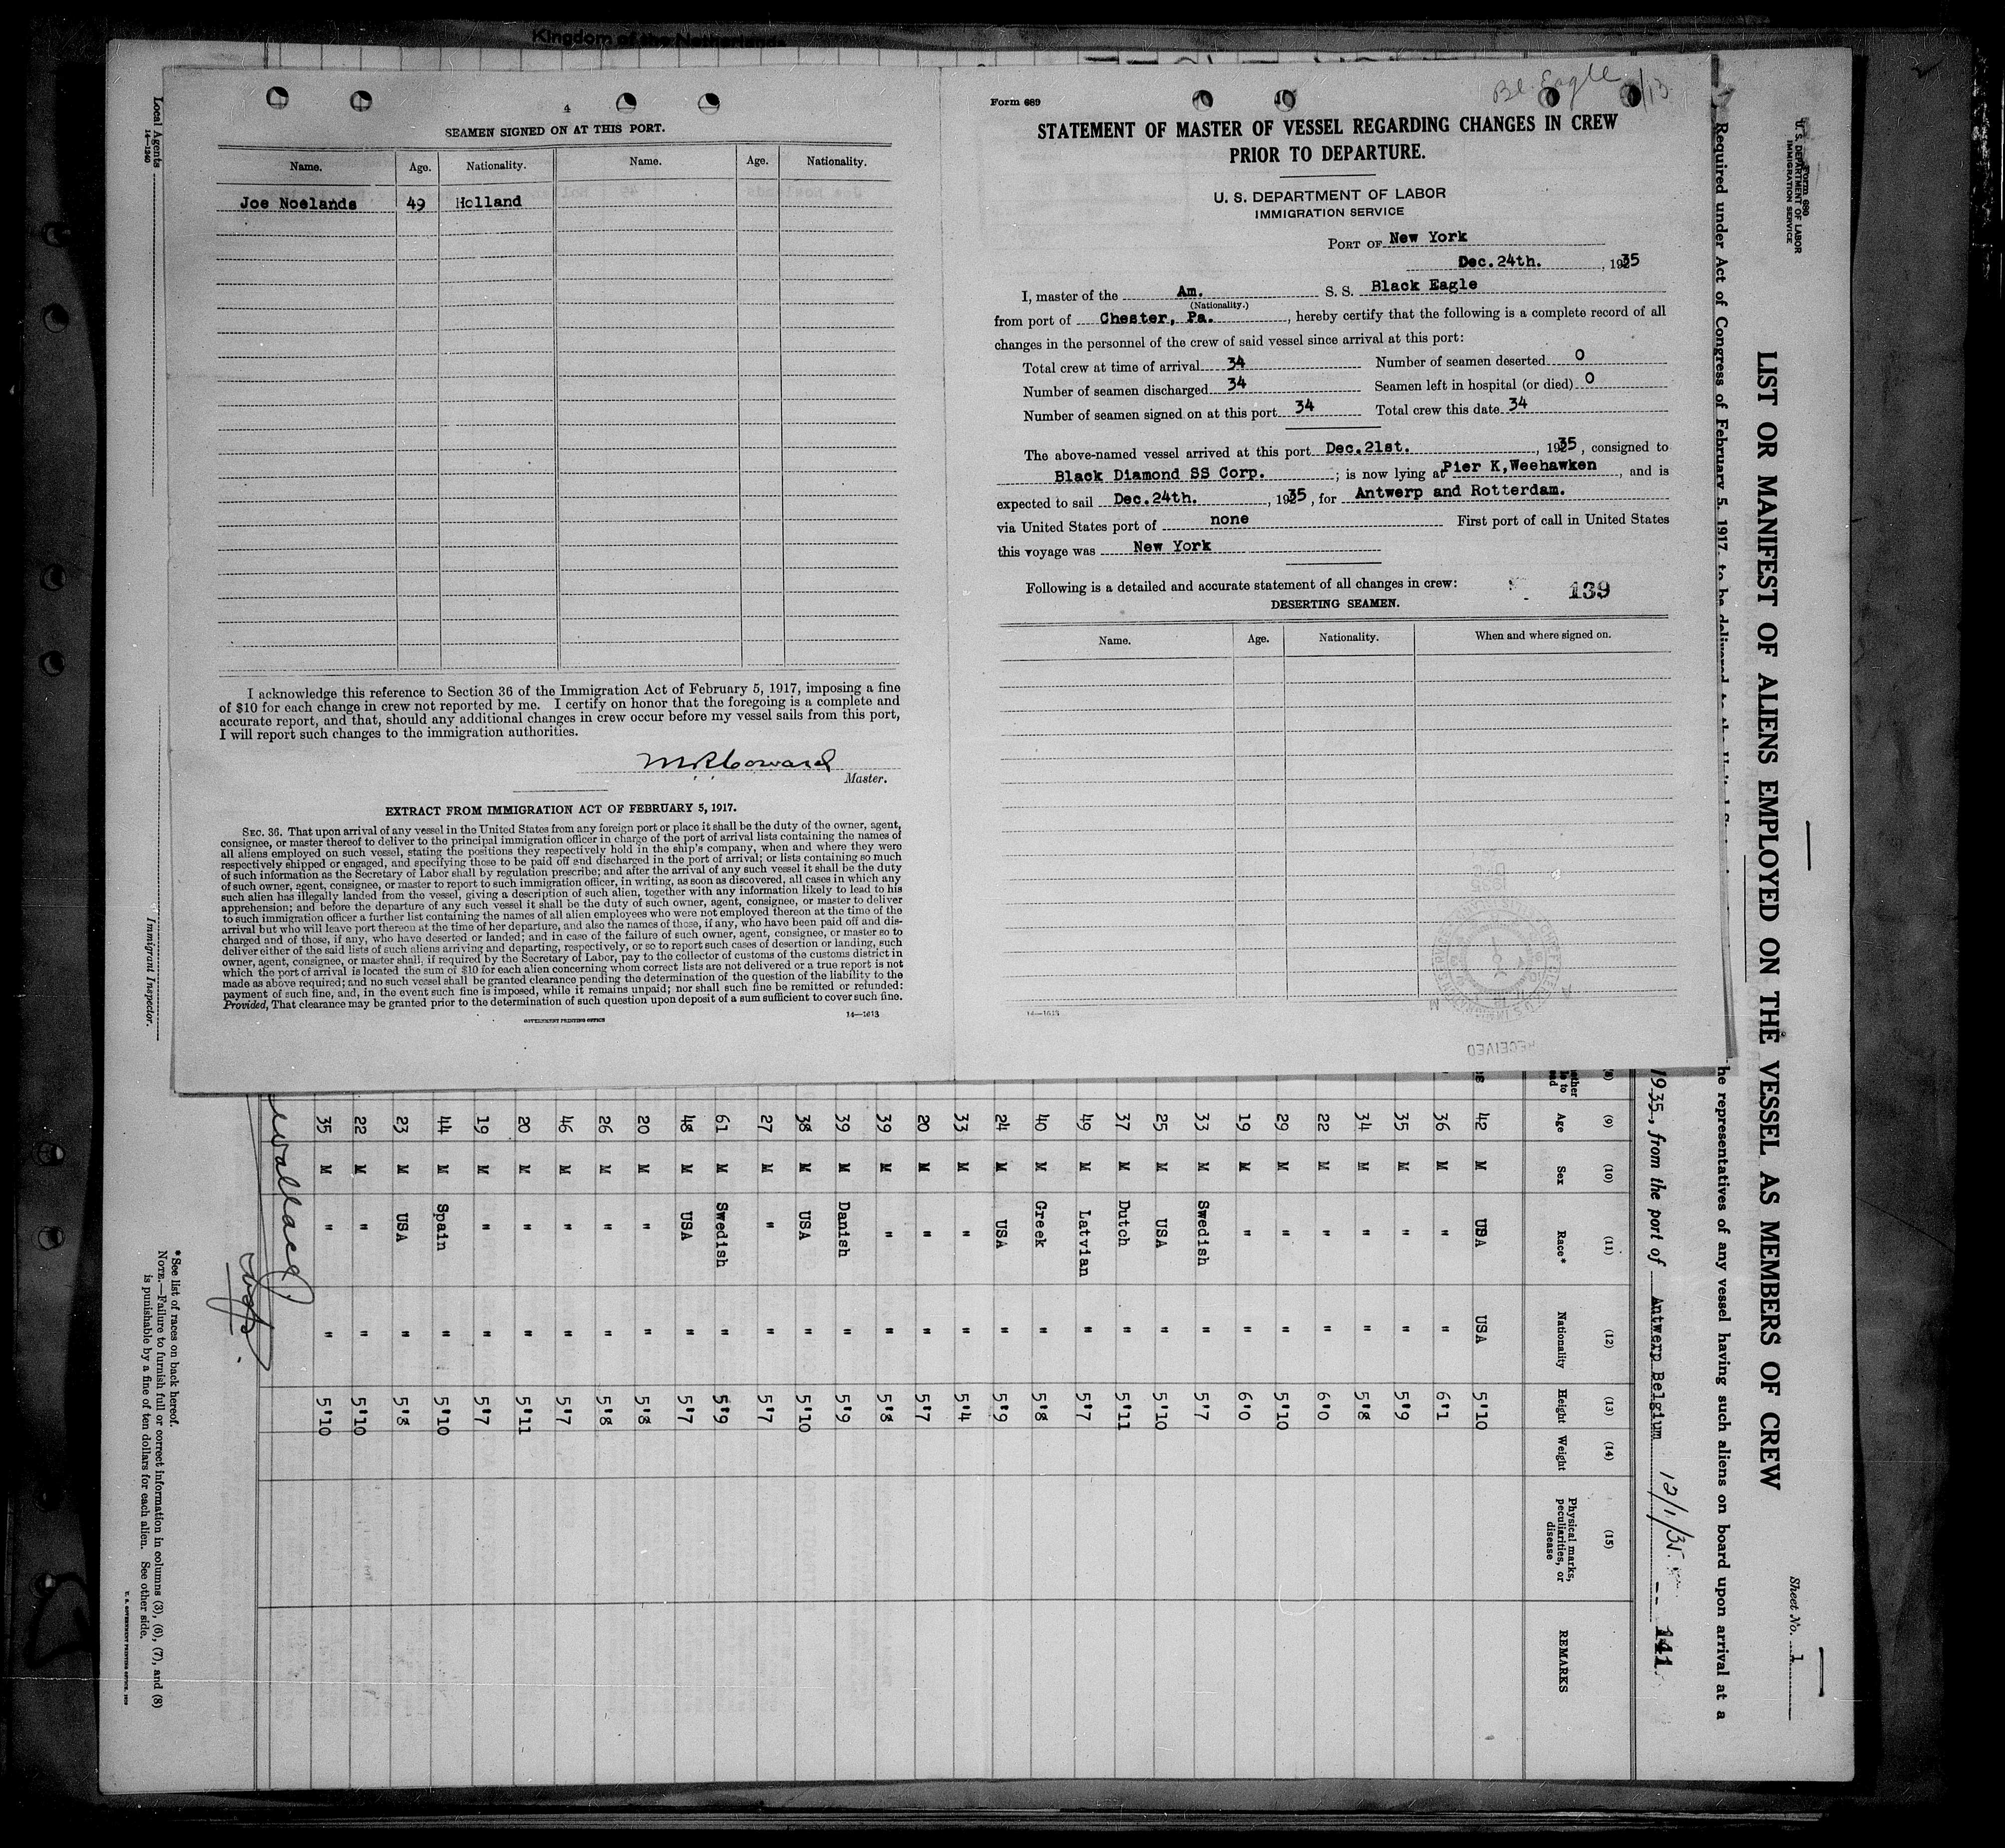 Kingdom of the Netherlands
4
SEAMEN SIGNED ON AT THIS PORT.
Name. Age. Nationality. Name. Age. Nationality.
Joe Noelands 49 Holland
I acknowledge this reference to Section 36 of the Immigration Act of February 5, 1917, imposing a fine
of $10 for each change in crew not reported by me. I certify on honor that the foregoing is a complete and
accurate report, and that, should any additional changes in crew occur before my vessel sails from this port,
I will report such changes to the immigration authorities.
Master.
EXTRACT FROM IMMIGRATION ACT OF FEBRUARY 5, 1917.
SEC. 36. That upon arrival of any vessel in the United States from any foreign port or place it shall be the duty of the owner, agent,
consignee, or master thereof to deliver to the principal immigration officer in charge of the port of arrival lists containing the names of
all aliens employed on such vessel, stating the positions they respectively hold in the ship's company, when and where they were
respectively shipped or engaged, and specifying those to be paid off and discharged in the port of arrival; or lists containing so much
of such information as the Secretary of Labor shall by regulation prescribe; and after the arrival of any such vessel it shall be the duty
of such owner, agent, consignee, or master to report to such immigration officer, in writing, as soon as discovered, all cases in which any
such alien has illegally landed from the vessel, giving a description of such alien, together with any information likely to lead to his
apprehension; and before the departure of any such vessel it shall be the duty of such owner, agent, consignee, or master to deliver
to such immigration officer a further list containing the names of all alien employees who were not employed thereon at the time of the
arrival but who will leave port thereon at the time of her departure, and also the names of those, if any, who have been paid off and dis-
charged and of those, if any, who have deserted or landed; and in case of the failure of such owner, agent, consignee, or master so to
deliver either of the said lists of such aliens arriving and departing, respectively, or so to report such cases of desertion or landing, such
owner, agent, consignee, or master shall, if required by the Secretary of Labor, pay to the collector of customs of the customs district in
which the port of arrival is located the sum of $10 for each alien concerning whom correct lists are not delivered or a true report is not
made as above required; and no such vessel shall be granted clearance pending the determination of the question of the liability to the
payment of such fine, and, in the event such fine is imposed, while it remains unpaid; nor shall such fine be remitted or refunded:
Provided, That clearance may be granted prior to the determination of such question upon deposit of a sum sufficient to cover such fine.
GOVERNMENT PRINTING OFFICE
14—1613
Bl. Eagle
Form 689
STATEMENT OF MASTER OF VESSEL REGARDING CHANGES IN CREW
PRIOR TO DEPARTURE.
U. S. DEPARTMENT OF LABOR
IMMIGRATION SERVICE
PORT OF New York
Dec.24th. , 1935
I, master of the Am. S. S. Black Eagle
(Nationality.)
from port of Chester, Pa. , hereby certify that the following is a complete record of all
changes in the personnel of the crew of said vessel since arrival at this port:
Total crew at time of arrival 34 Number of seamen deserted 0
Number of seamen discharged 34 Seamen left in hospital (or died) 0
Number of seamen signed on at this port 34 Total crew this date 34
The above-named vessel arrived at this port Dec.21st. , 1935 , consigned to
Black Diamond SS Corp. ; is now lying at Pier K,Weehawken , and is
expected to sail Dec.24th. , 1935 , for Antwerp and Rotterdam.
via United States port of none First port of call in United States
this voyage was New York
Following is a detailed and accurate statement of all changes in crew:
139
DESERTING SEAMEN.
Name. Age. Nationality. When and where signed on.
14—1613
RECEIVED
Form 680
U. S. DEPARTMENT OF LABOR
IMMIGRATION SERVICE
Sheet No. 1
LIST OR MANIFEST OF ALIENS EMPLOYED ON THE VESSEL AS MEMBERS OF CREW
Required under Act of Congress of February 5, 1917, to be delivered to the
he representatives of any vessel having such aliens on board upon arrival at a
1935, from the port of Antwerp Belgium 12/1/35 141
(9) (10) (11) (12) (13) (14) (15)
Age Sex Race* Nationality Height Weight Physical marks, peculiarities, or disease REMARKS
42 M USA USA 5'10
36 M " " 6'1
35 M " " 5'9
34 M " " 5'8
22 M " " 6'0
29 M " " 5'10
19 M " " 6'0
33 M Swedish " 5'7
25 M USA " 5'10
37 M Dutch " 5'11
49 M Latvian " 5'7
40 M Greek " 5'8
24 M USA " 5'9
33 M " " 5'4
20 M " " 5'7
39 M " " 5'8
39 M Danish " 5'9
38 M USA " 5'10
27 M " " 5'7
61 M Swedish " 5'9
48 M USA " 5'7
20 M " " 5'8
26 M " " 5'8
46 M " " 5'7
20 M " " 5'11
19 M " " 5'7
44 M Spain " 5'10
23 M USA " 5'8
22 M " " 5'10
35 M " " 5'10
Wallace
*See list of races on back hereof.
NOTE.—Failure to furnish full or correct information in columns (3), (6), (7), and (8)
is punishable by a fine of ten dollars for each alien. See other side.
Local Agents
14—1240
Immigrant Inspector.